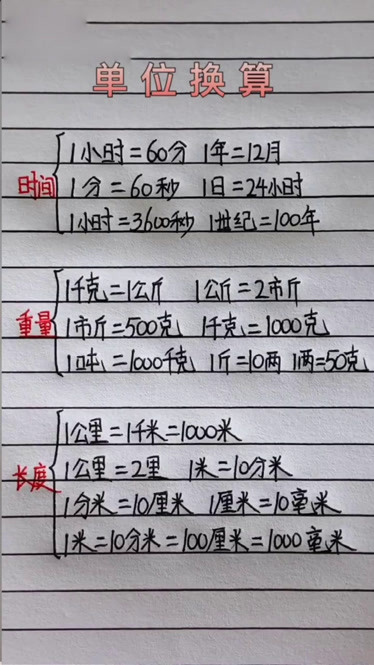 单位换算
时间
1小时=60分 1年=12月
1分=60秒 1日=24小时
1小时=3600秒 1世纪=100年
重量
1千克=1公斤 1公斤=2市斤
1市斤=500克 1千克=1000克
1吨=1000千克 1斤=10两 1两=50克
长度
1公里=1千米=1000米
1公里=2里 1米=10分米
1分米=10厘米 1厘米=10毫米
1米=10分米=100厘米=1000毫米